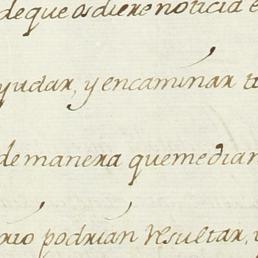 de que os diere noticia e
yudar, y encaminar tu
de manera que median
rio podrian resultar, y